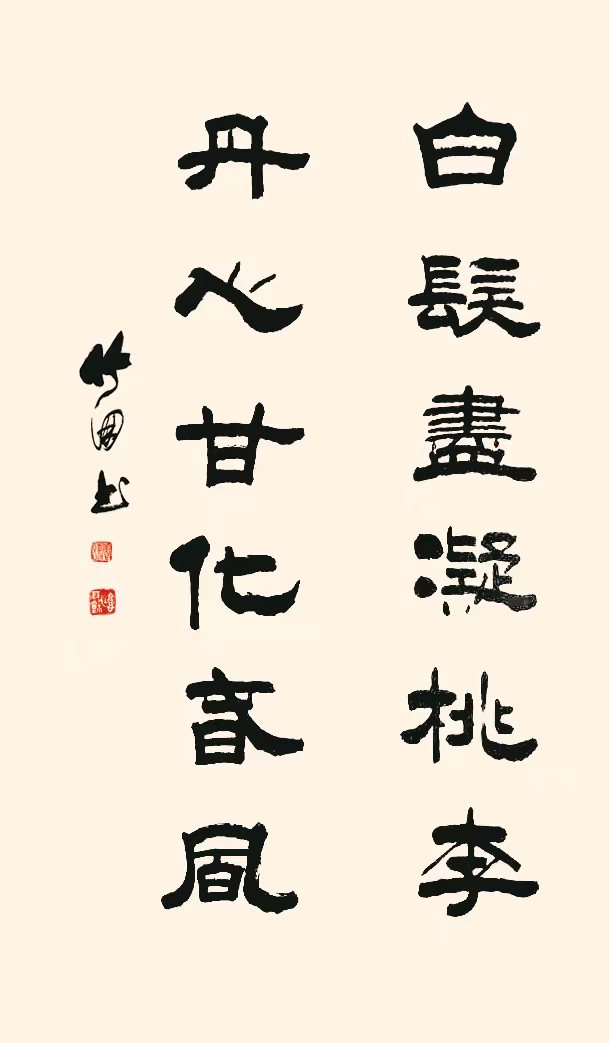 白髮盡凝桃李
丹心甘化春風
竹園书